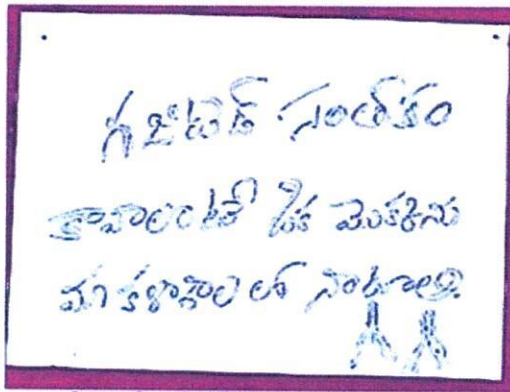 గజిటెడ్ సంతకం
కావాలంటే ఒక మొక్కను
మా కళాశాలలో నాటాలి.